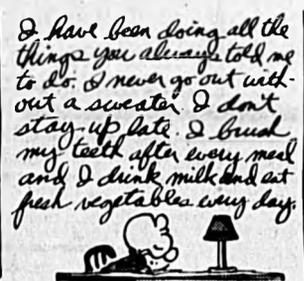 I have been doing all the
things you always told me
to do. I never go out with-
out a sweater. I don't
stay up late. I brush
my teeth after every meal
and I drink milk and eat
fresh vegetables every day.